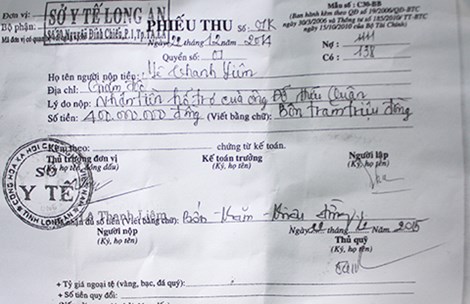 Đơn vị:
SỞ Y TẾ LONG AN
Số 70, Nguyễn Đình Chiểu, P.1, Tp.TA, LA
Bộ phận:
Mã đơn vị
PHIẾU THU Số 07K
Ngày 22 tháng 12 năm 2014
Quyển số: 01
Mẫu số : C30-BB
(Ban hành kèm theo QĐ số 19/2006/QĐ-BTC
ngày 30/3/2006 và Thông tư số 185/2010/TT-BTC
ngày 15/10/2010 của Bộ Tài Chính)
Nợ : 111
Có : 138
Họ tên người nộp tiền: Thanh Liêm
Địa chỉ: Giám đốc
Lý do nộp: Nhận tiền hỗ trợ của ông Đỗ Quân
Số tiền: 400.000.000 đồng (Viết bằng chữ): Bốn trăm triệu đồng
Kèm theo: chứng từ kế toán.
Thủ trưởng đơn vị
(Ký, họ tên, đóng dấu)
Kế toán trưởng
(Ký, họ tên)
Người lập
(Ký, họ tên)
CỘNG HÒA XÃ HỘI
SỞ
Y TẾ
TỈNH LONG AN
Thanh Liêm
đủ số tiền (Viết bằng chữ): Bốn trăm triệu đồng
Ngày 22 tháng năm 2015
Người nộp
(Ký, họ tên)
Thủ quỹ
(Ký, họ tên)
+ Tỷ giá ngoại tệ (vàng, bạc, đá quý):
+ Số tiền quy đổi: